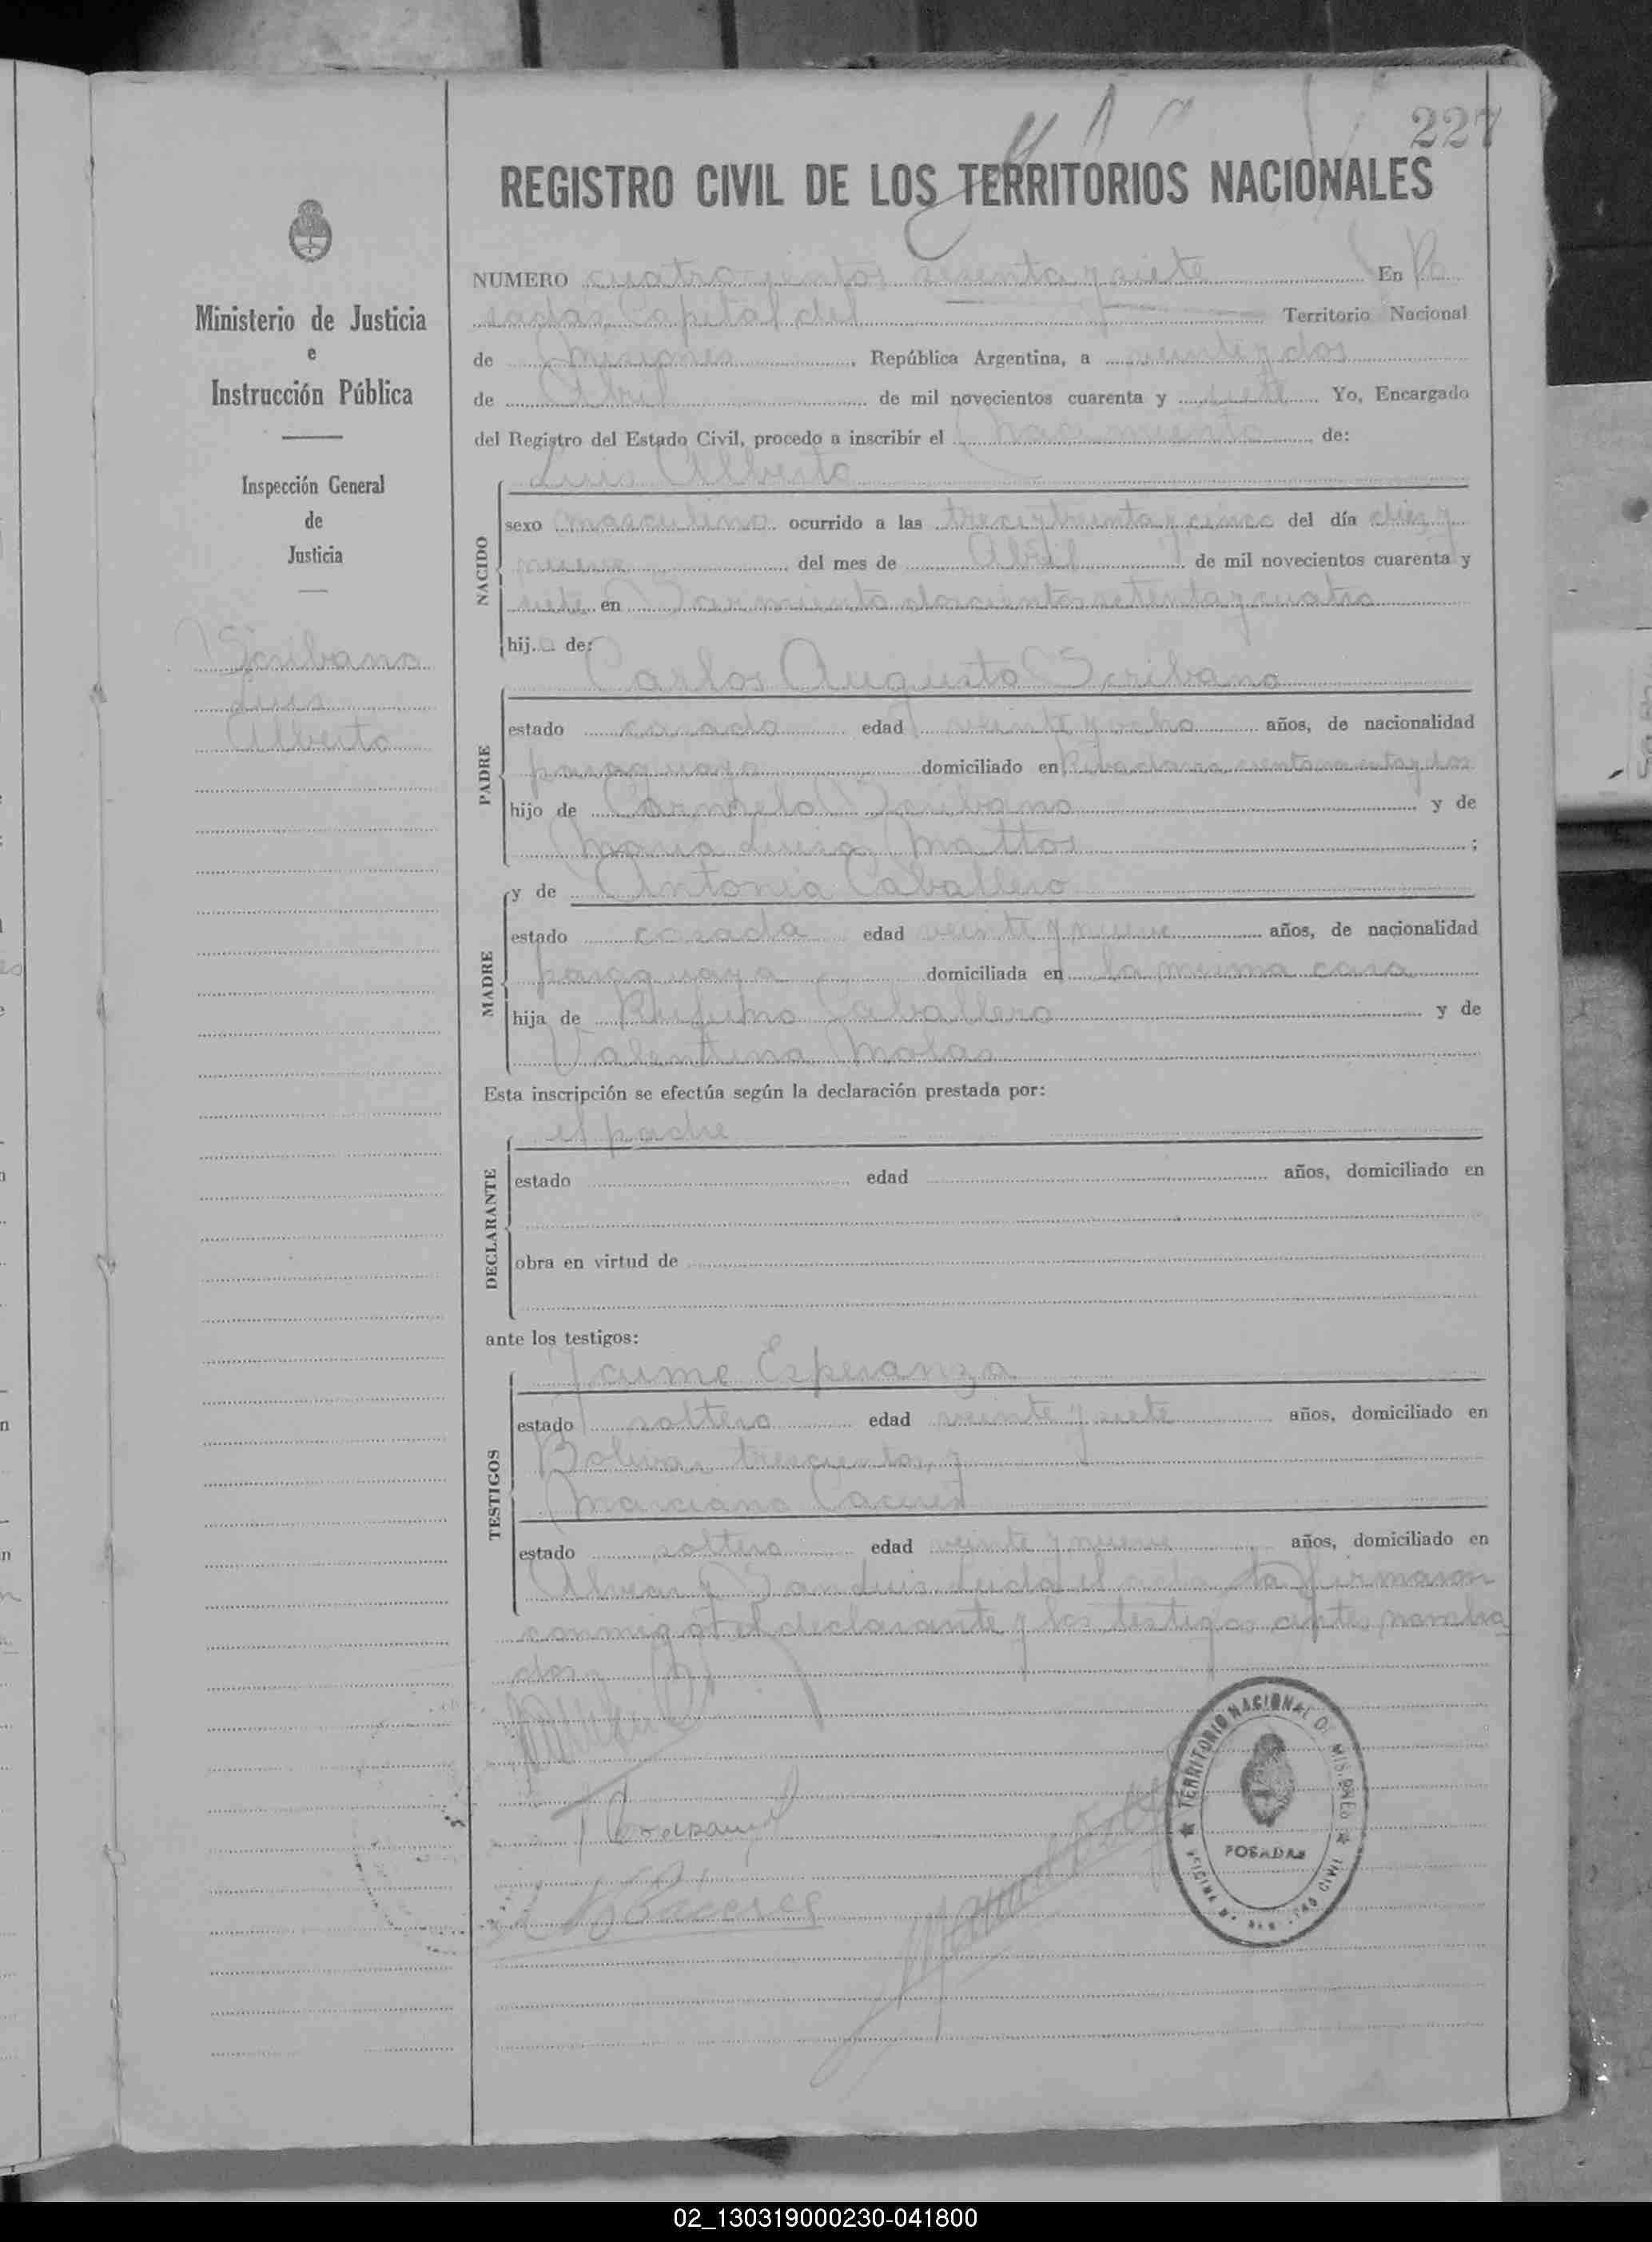 227
REGISTRO CIVIL DE LOS TERRITORIOS NACIONALES
Ministerio de Justicia
e
Instrucción Pública
Inspección General
de
Justicia
Scribano
Luis
Alberto
NUMERO cuatrocientos sesenta y siete En Po
sadas, Capital del Territorio Nacional
de Misiones, República Argentina, a veinte y dos
de Abril de mil novecientos cuarenta y siete Yo, Encargado
del Registro del Estado Civil, procedo a inscribir el nacimiento de:
Luis Alberto
NACIDO
sexo masculino ocurrido a las trece y treinta y cinco del día diez y
nueve del mes de Abril de mil novecientos cuarenta y
siete en Sarmiento doscientos setenta y cuatro
hijo de:
Carlos Augusto Scribano
PADRE
estado casado edad veinte y ocho años, de nacionalidad
paraguaya domiciliado en Ribadavia
hijo de Carmelo Scribano y de
María Luisa Mattos;
MADRE
y de Antonia Caballero
estado casada edad veinte y nueve años, de nacionalidad
paraguaya domiciliada en la misma casa
hija de Rhufino Caballero y de
Valentina Molas
Esta inscripción se efectúa según la declaración prestada por:
el padre
DECLARANTE
estado edad años, domiciliado en
obra en virtud de
ante los testigos:
Jaime Esperanza
TESTIGOS
estado soltero edad veinte y siete años, domiciliado en
Bolivar trescientos, y
Marciano Caceres
estado soltero edad veinte y nueve años, domiciliado en
Alvear y San Luis. Leida el acta, la firmaron
conmigo el declarante y los testigos antes nombra
dos.
Caceres
TERRITORIO NACIONAL DE MISIONES
POSADAS
02_130319000230-041800